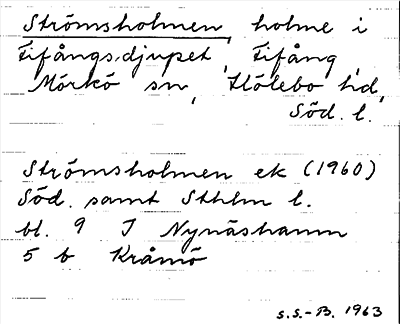 Strömsholmen, holme i
Fifångsdjupet, Fifång,
Mörkö sn, Hölebo hd,
Söd. l.
Strömsholmen ek (1960)
Söd. samt Sthlm l.
bl. 9 I Nynäshamn
5 b Kråmö
S.S.-B. 1963